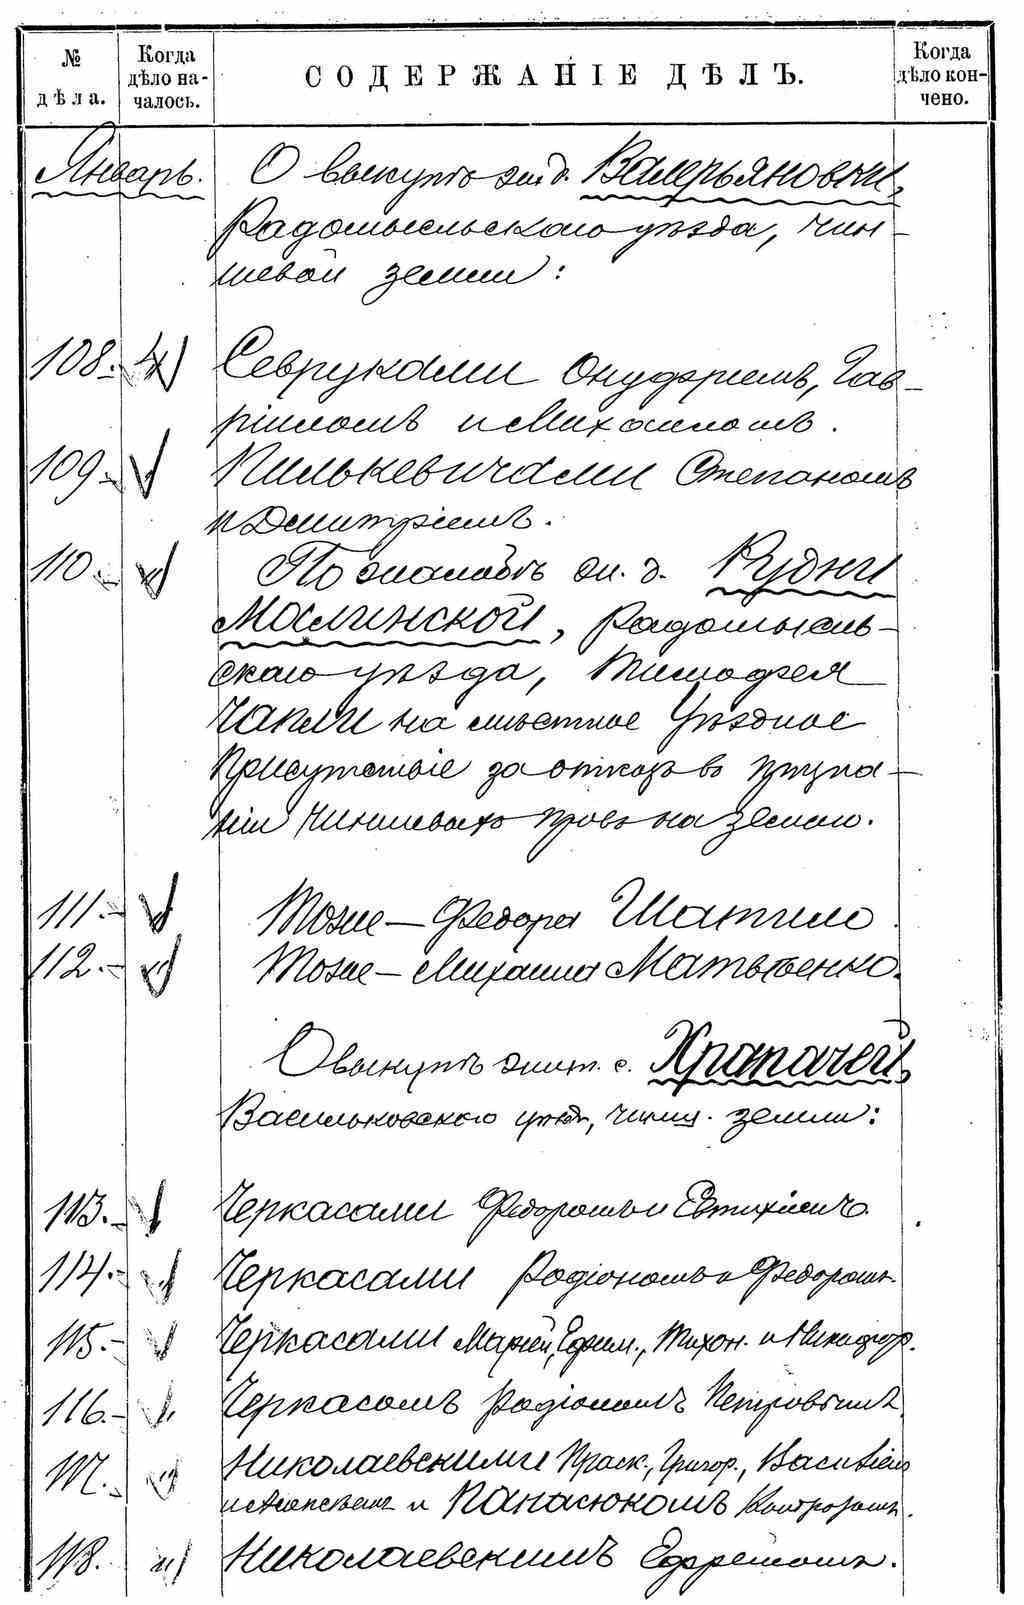 № дѣла.
Когда дѣло началось.
СОДЕРЖАНІЕ ДѢЛЪ.
Когда дѣло кончено.
Январь.
О выкупѣ жит. д. Валерьяновки,
Радомысльскаго уѣзда, чин-
шевой земли:
108. Севруками Онуфріемъ, Гав-
ріиломъ и Михаиломъ.
109. Пилькевичами Степаномъ
и Дмитріемъ.
110. По жалобѣ жи. д. Рудни
Малинской, Радомысль-
скаго уѣзда, Тимофея
Чапли на мѣстное Уѣздное
Присутствіе за отказъ въ призна-
ніи чиншевыхъ правъ на землю.
111. Тоже — Федора Шатило.
112. Тоже — Михаила Матвѣенко.
О выкупѣ жит. с. Храпачей,
Васильковскаго уѣзд., чинш. земли:
113. Черкасами Федоромъ и Евтихіемъ.
114. Черкасами Родіономъ и Федоромъ.
115. Черкасами Маріей, Ефим., Тихон. и Никифор.
116. Черкасомъ Родіономъ Петровымъ.
117. Николаевскими Праск., Григор., Василіем
и Алексѣемъ и Панасюкомъ
118. Николаевскимъ Ефремомъ.